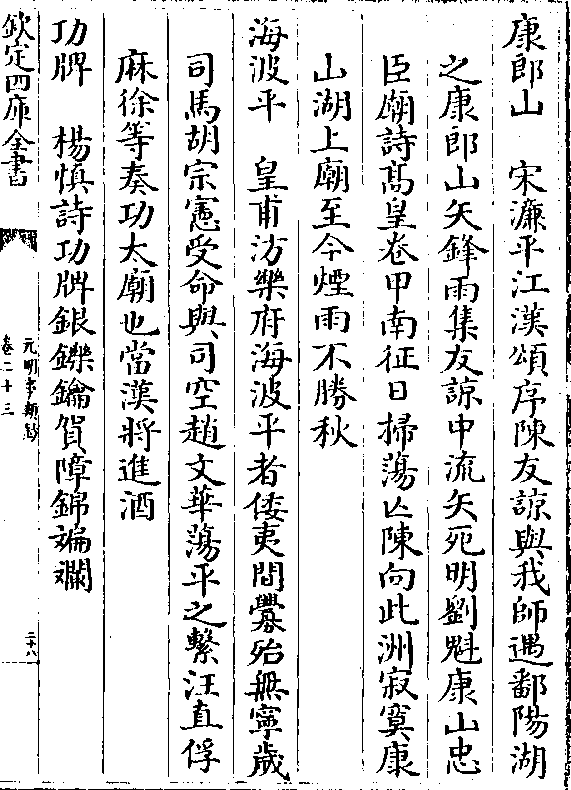 康郎山　宋濂平江漢頌序陳友諒與我師遇鄱陽湖
之康郎山矢鋒雨集友諒中流矢死明劉魁康山忠
臣廟詩髙皇卷甲南征日掃蕩亾陳向此洲寂寞康
山湖上廟至今煙雨不勝秋
海波平　皇甫汸樂府海波平者倭夷閒釁殆無寧歲
司馬胡宗憲受命與司空趙文華蕩平之繫汪直俘
麻徐等奏功太廟也當漢將進酒
功牌　楊慎詩功牌銀鑠鑰賀障錦斒斕
欽定四庫全書
元明事類鈔
卷二十三
二十八